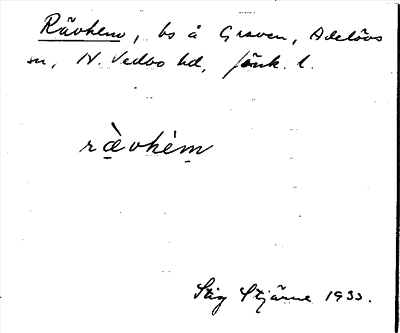 Rävhem, bs å Graven, Adelövs
sn, N. Vedbo hd, Jönk. l.
ràvhém
Stig Stjärne 1933.